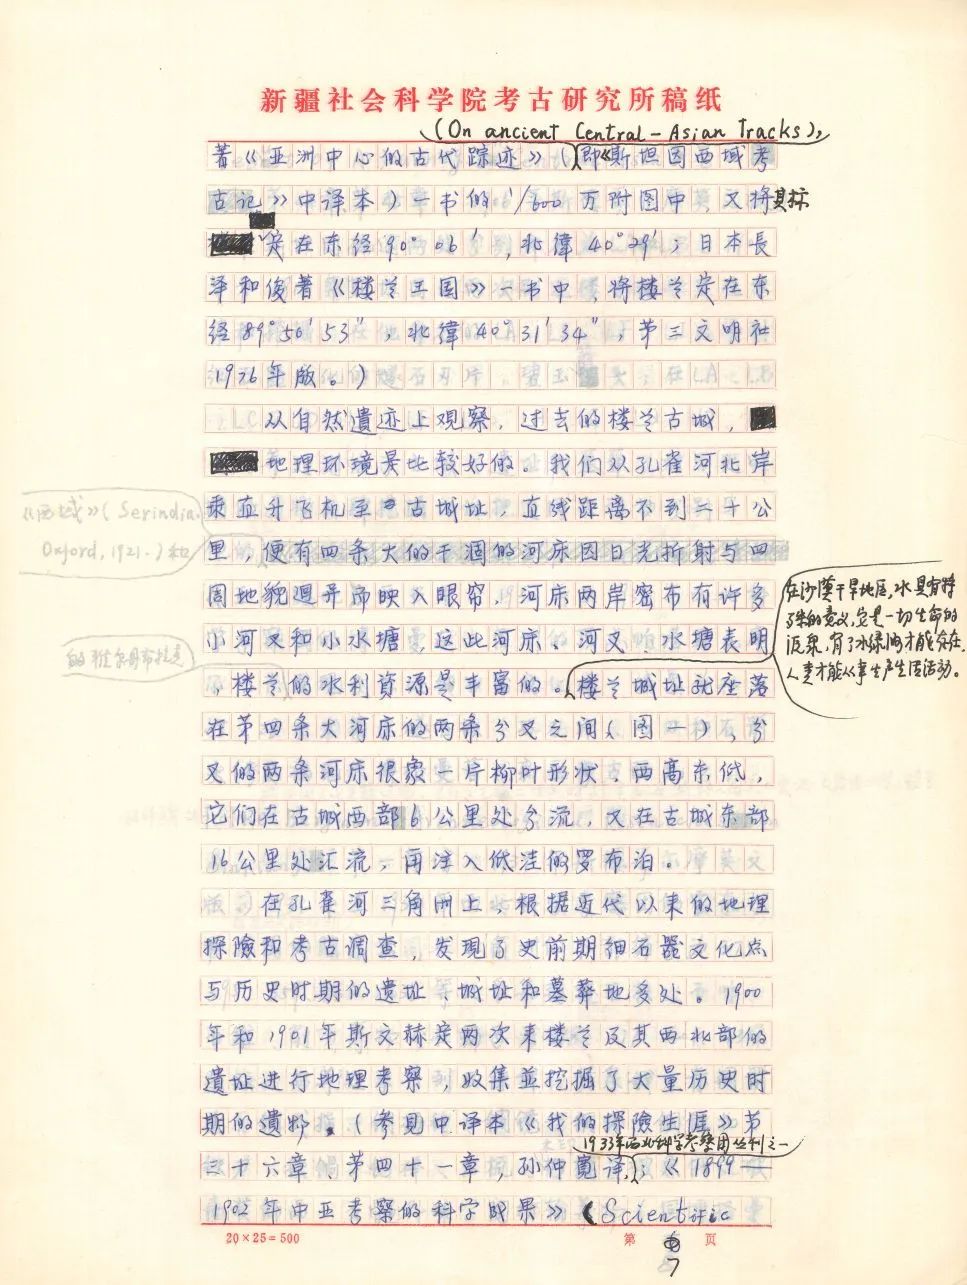 新疆社会科学院考古研究所稿纸
(On ancient Central-Asian Tracks),
著《亚洲中心的古代踪迹》(即《斯坦因西域考
古记》中译本)一书的1/600万附图中又将其标
定在东经90°06′,北緯40°29′;日本長
泽和俊著《楼兰王国》一书中,将楼兰定在东
经89°50′53″,北緯40°31′34″,第三文明社
1976年版。)
从自然遺迹上观察,过去的楼兰古城,
地理环境是比较好的。我们从孔雀河北岸
乘直升飞机至古城址,直线距离不到二十公
里,便有四条大的干涸的河床因日光折射与四
周地貌迥异而映入眼帘,河床两岸密布有许多
小河叉和小水塘,这些河床、河叉、水塘表明
,楼兰的水利資源是丰富的。楼兰城址就座落
在第四条大河床的两条分叉之间(图一),分
叉的两条河床很象一片柳叶形状,西高东低,
它们在古城西部6公里处分流,又在古城东部
16公里处汇流,再注入低洼的罗布泊。
在孔雀河三角洲上,根据近代以来的地理
探險和考古调查,发現了史前期细石器文化点
与历史时期的遗址、城址和墓葬地多处。1900
年和1901年斯文赫定两次来楼兰及其西北部的
遺址进行地理考察,收集並挖掘了大量历史时
期的遺物。(参见中译本《我的探險生涯》第
1933年西北科学考察团丛刊之一
三十六章、第四十一章,孙仲寬译,;《1899—
1902年中亚考察的科学成果》(Scientific
20×25=500
第 页
7
《西域》(Serindia.
Oxford,1921.)和
的雅尔丹布拉克
在沙漠干旱地区,水具有特
殊的意义,它是一切生命的
源泉,有了水绿洲才能存在,
人类才能从事生产生活活动。